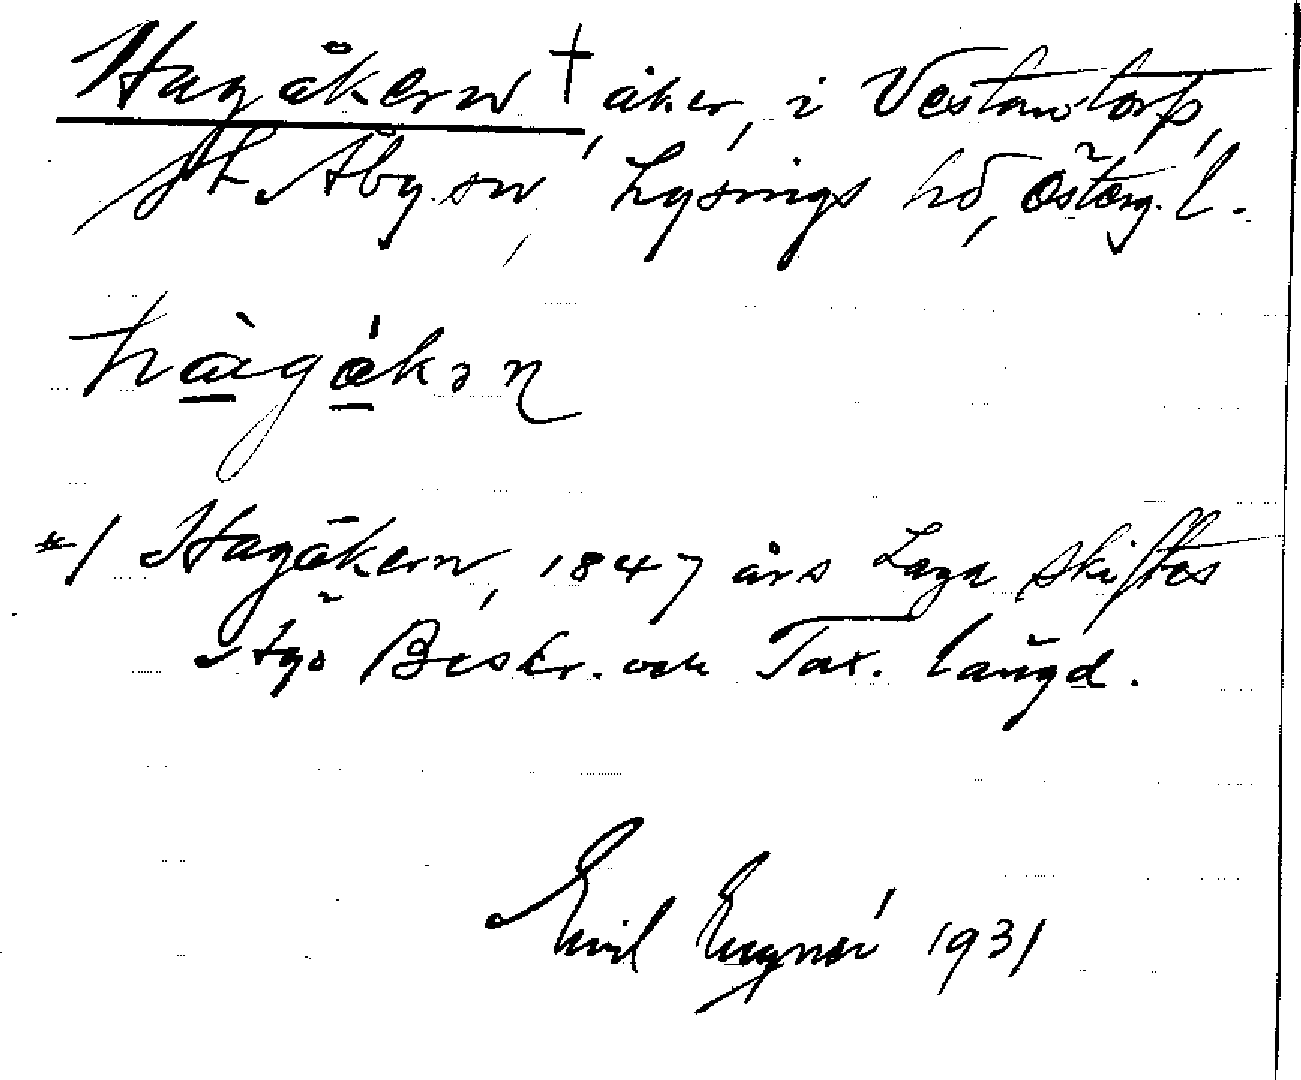 Hagåkern † åker, i Vestantorp,
St. Åby sn, Lysings hd, Österg. l.
hàgåkəɳ
*/ Hagåkern, 1847 års Laga Skiftes
Ägo Beskr. och Tax. längd.
Emil 1931